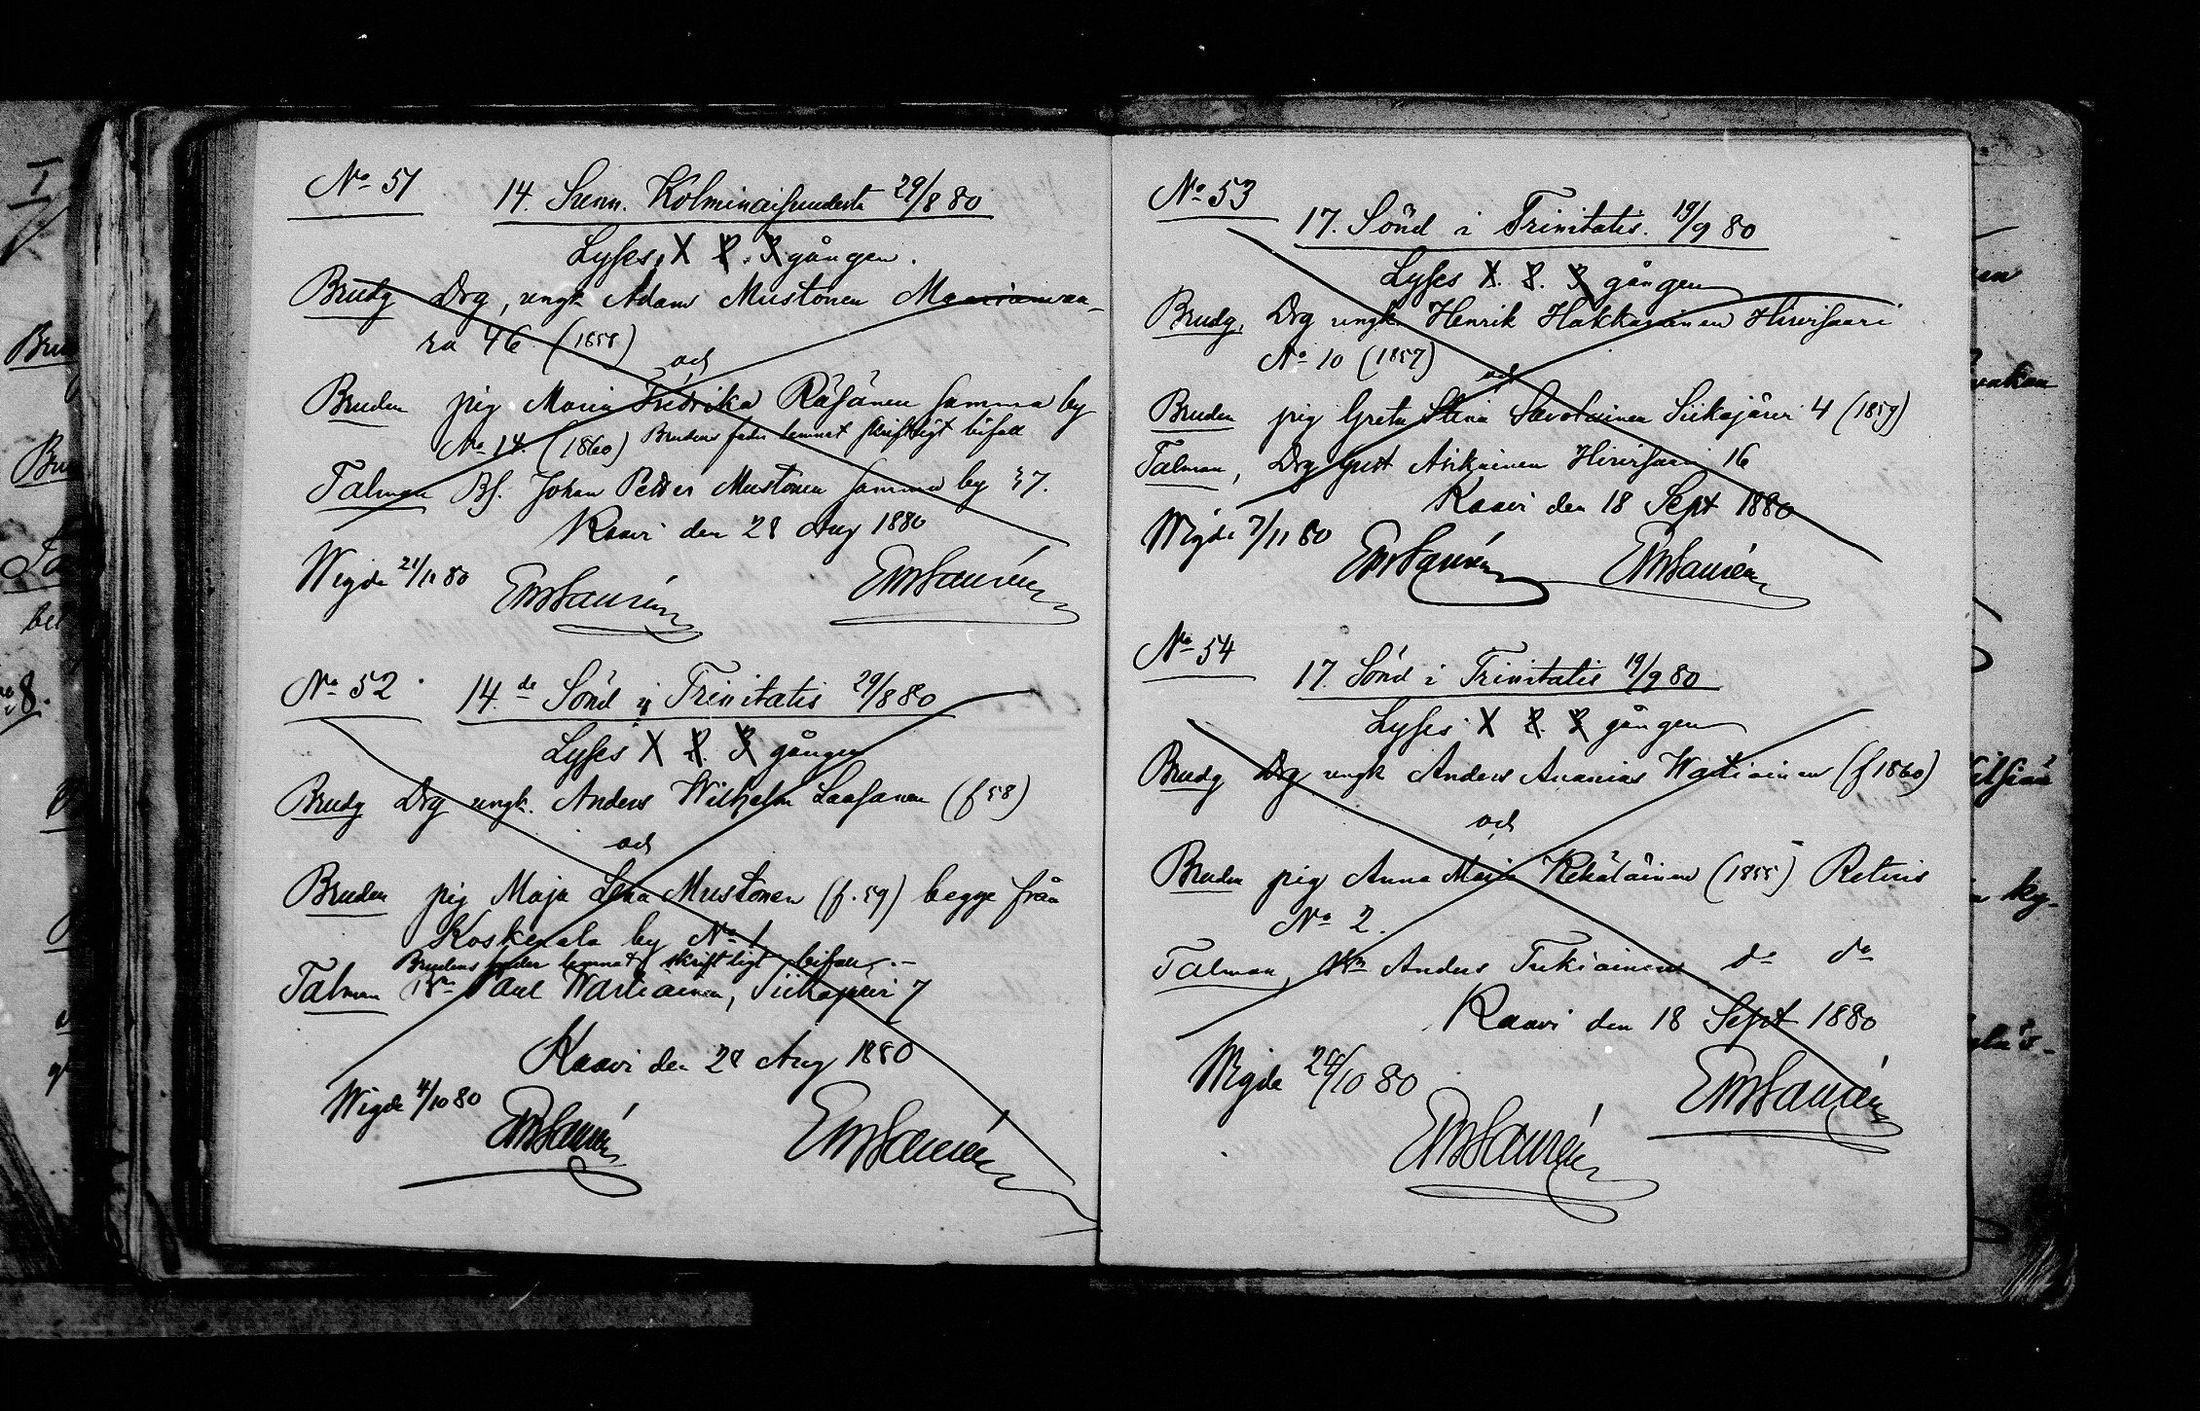 No 51
14. Sunn. Kolminaisuudesta 29/8 80
Lyses X 2. 3 gången.
Brudg Drg, ungk Adam Mustonen Maarianvaa-
ra 46 (1858)
och
Bruden pig Maria Fredrika Räsänen samma by
No 14. (1860) Brudens fader lemnat skriftligt bifall
Talman Bf. Johan Petter Mustonen samma by 37.
Kaavi den 28 Aug 1880
Wigde 21/11 80 EmSaurén EmSaurén
No 52
14.de Sönd i Trinitatis 29/8 80
Lyses X 2. 3 gången
Brudg Drg ungk. Anders Wilhelm Laasanen (f 58)
och
Bruden pig Maja Lena Mustonen (f. 59) begge från
Koskenala by No 1
Brudens fader lemnat skriftligt bifall.-
Talman Paul Wartiainen, Siikajärvi 7
Kaavi den 28 Aug 1880
Wigde 4/10 80 EmSaurén EmSaurén
No 53
17. Sönd i Trinitatis. 19/9 80
Lyses X. 2. 3 gången
Brudg. Drg ungk Henrik Hakkarainen Hirvisaari
No 10 (1857)
och
Bruden pig Greta Stina Savolainen Siikajärvi 4 (1859)
Talman, Drg Gust Asikainen Hirvisaari 16
Kaavi den 18 Sept 1880
Wigde 7/11 80 EmSaurén EmSaurén
No 54
17. Sönd i Trinitatis 19/9 80
Lyses X 2. 3 gången
Brudg Drg ungk Anders Ananias Wartiainen (f 1860)
och
Bruden pig Anna Maria Kekäläinen (1855) Retunis
No 2.
Talman, Anders Tukiainen do do
Kaavi den 18 Sept 1880
Wigde 24/10 80 EmSaurén
EmSaurén